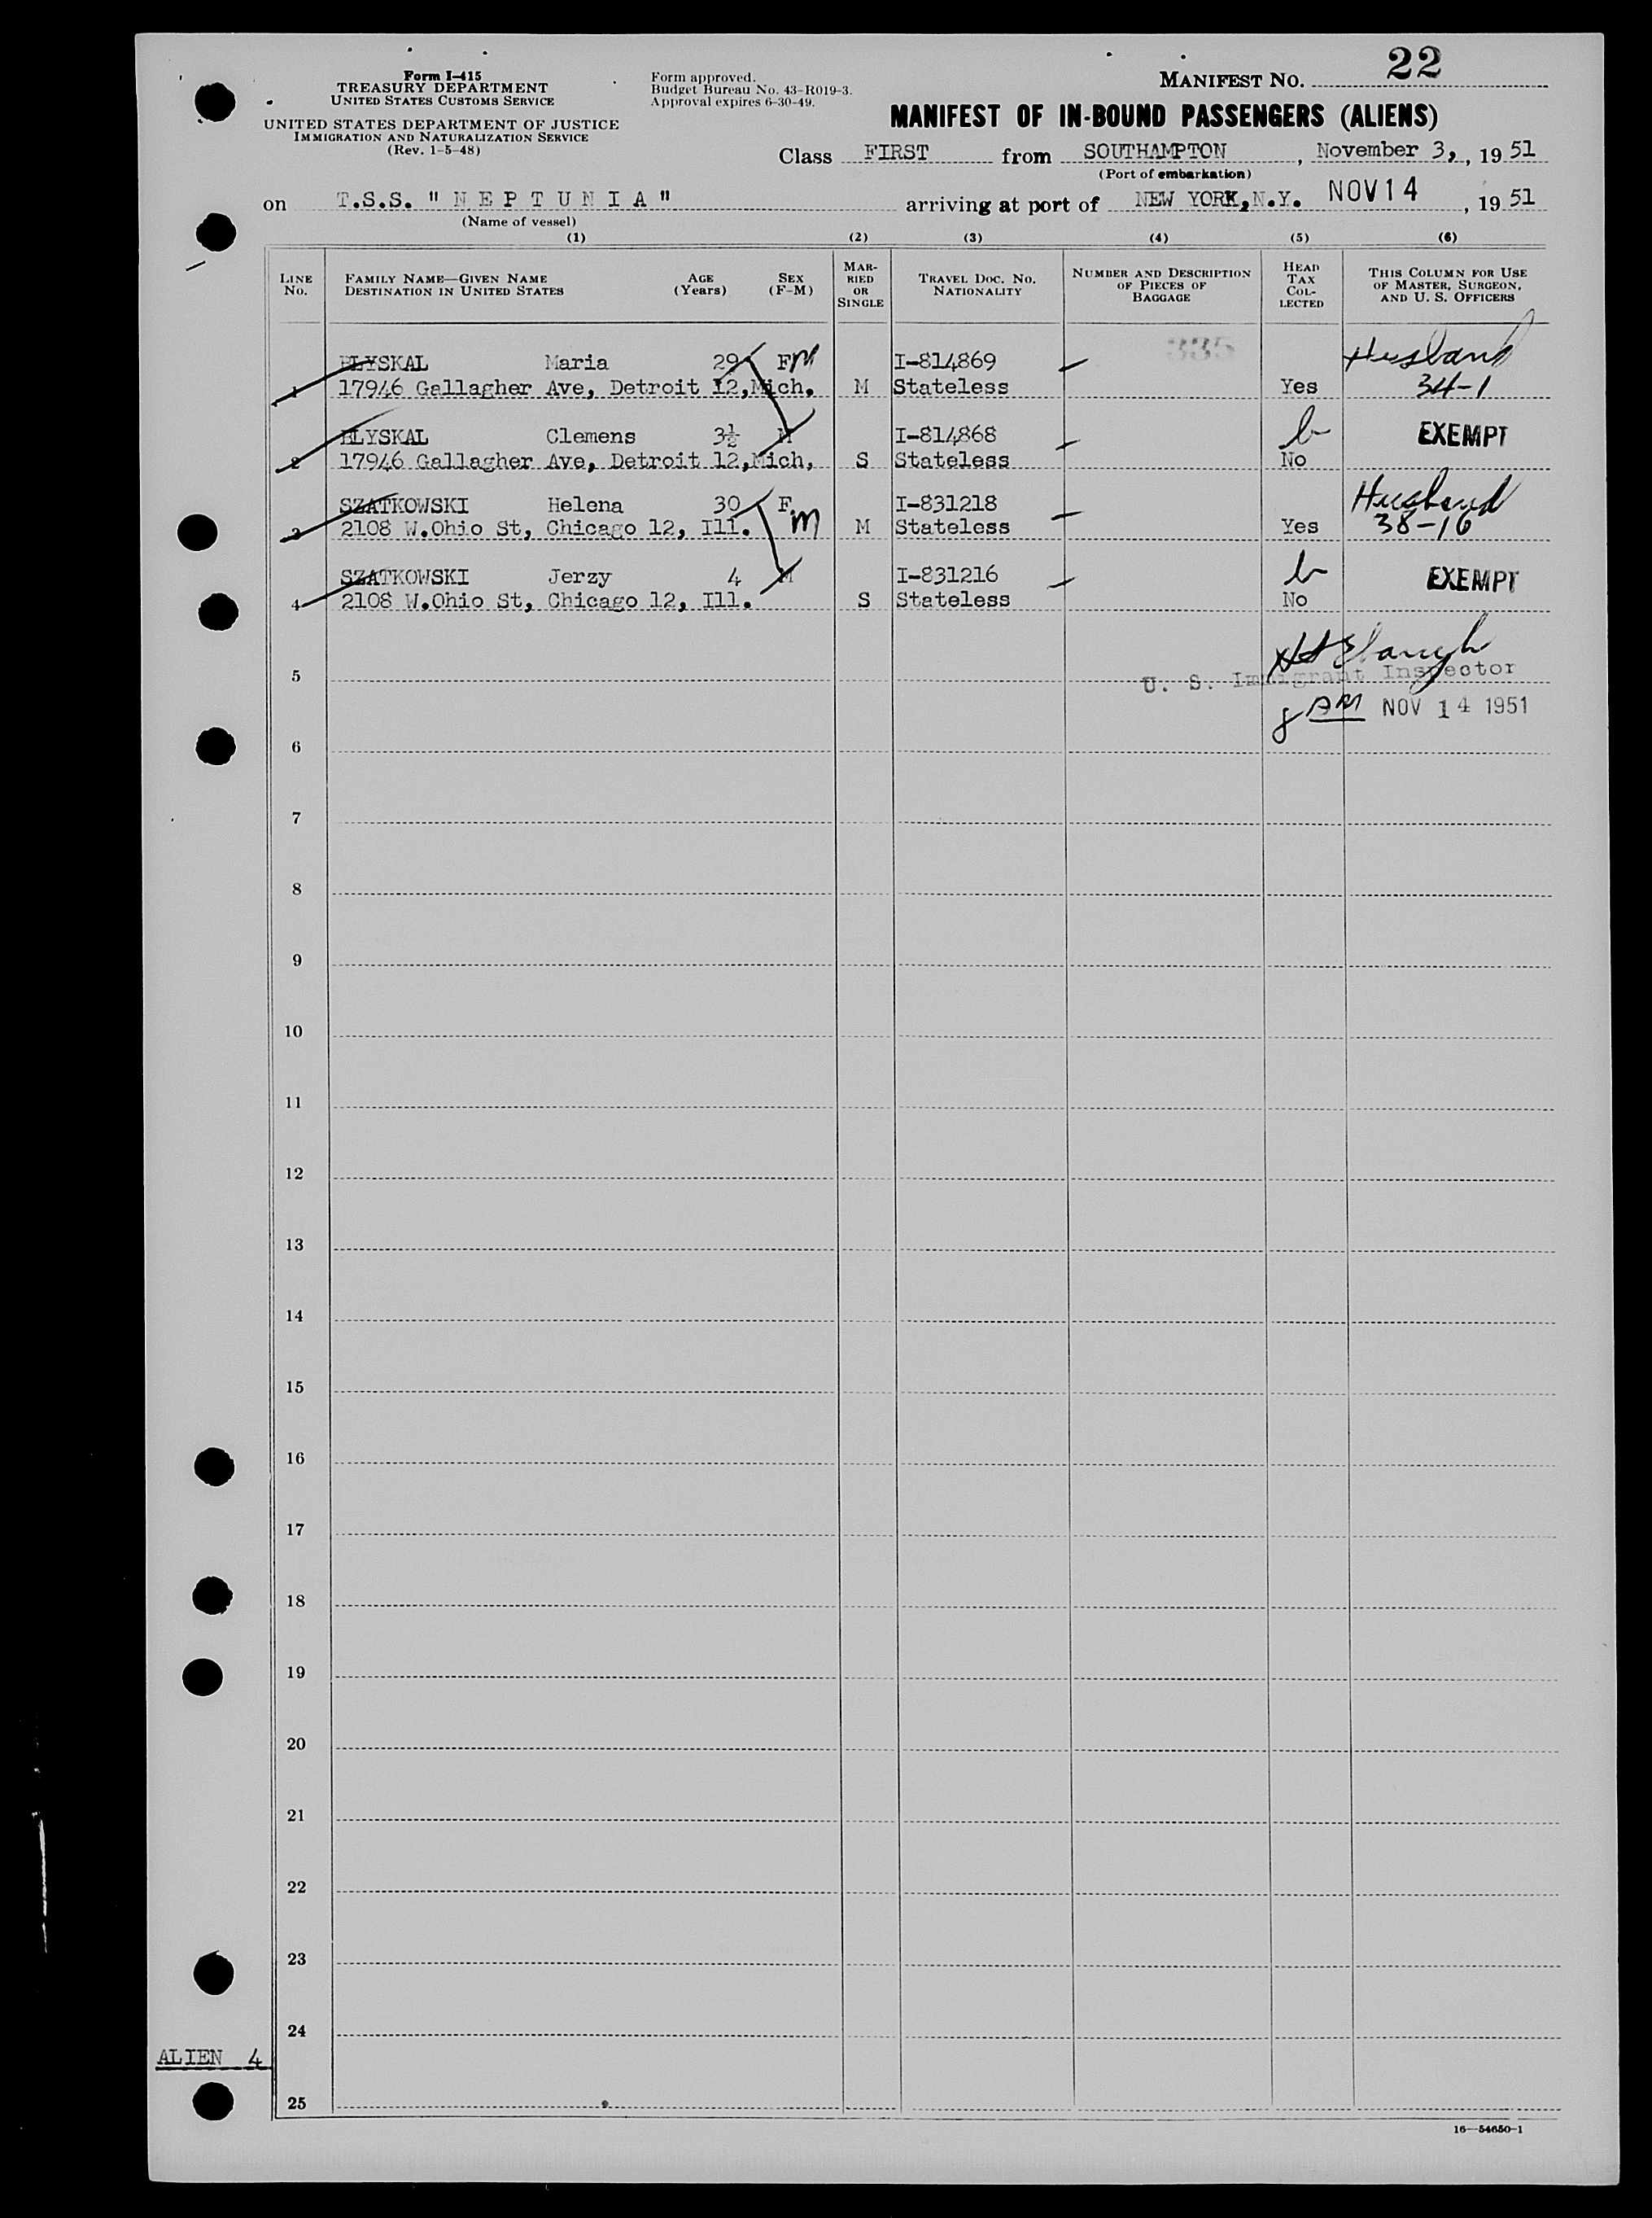 Form I-415
TREASURY DEPARTMENT
UNITED STATES CUSTOMS SERVICE
UNITED STATES DEPARTMENT OF JUSTICE
IMMIGRATION AND NATURALIZATION SERVICE
(Rev. 1-5-48)
Form approved.
Budget Bureau No. 43-R019-3.
Approval expires 6-30-49.
MANIFEST NO. 22
MANIFEST OF IN-BOUND PASSENGERS (ALIENS)
Class FIRST from SOUTHAMPTON, November 3, , 19 51
(Port of embarkation)
on T.S.S. " N E P T U N I A " arriving at port of NEW YORK, N.Y. NOV 14 , 19 51
(Name of vessel)
(1) (2) (3) (4) (5) (6)
LINE NO. FAMILY NAME—GIVEN NAME DESTINATION IN UNITED STATES AGE (Years) SEX (F-M) MARRIED OR SINGLE TRAVEL DOC. NO. NATIONALITY NUMBER AND DESCRIPTION OF PIECES OF BAGGAGE HEAD TAX COLLECTED THIS COLUMN FOR USE OF MASTER, SURGEON, AND U. S. OFFICERS
BLYSKAL Maria 29 F M I-814869 335 Husband
1 17946 Gallagher Ave, Detroit 12, Mich. M Stateless Yes 34-1
BLYSKAL Clemens 3½ M I-814868 EXEMPT
2 17946 Gallagher Ave, Detroit 12, Mich, S Stateless No
SZATKOWSKI Helena 30 F I-831218 Husband
3 2108 W.Ohio St, Chicago 12, Ill. m M Stateless Yes 38-16
SZATKOWSKI Jerzy 4 M I-831216 EXEMPT
4 2108 W.Ohio St, Chicago 12, Ill. S Stateless No
5 U. S. Immigrant Inspector
8 AM NOV 14 1951
6
7
8
9
10
11
12
13
14
15
16
17
18
19
20
21
22
23
24
ALIEN 4
25
16—54650-1